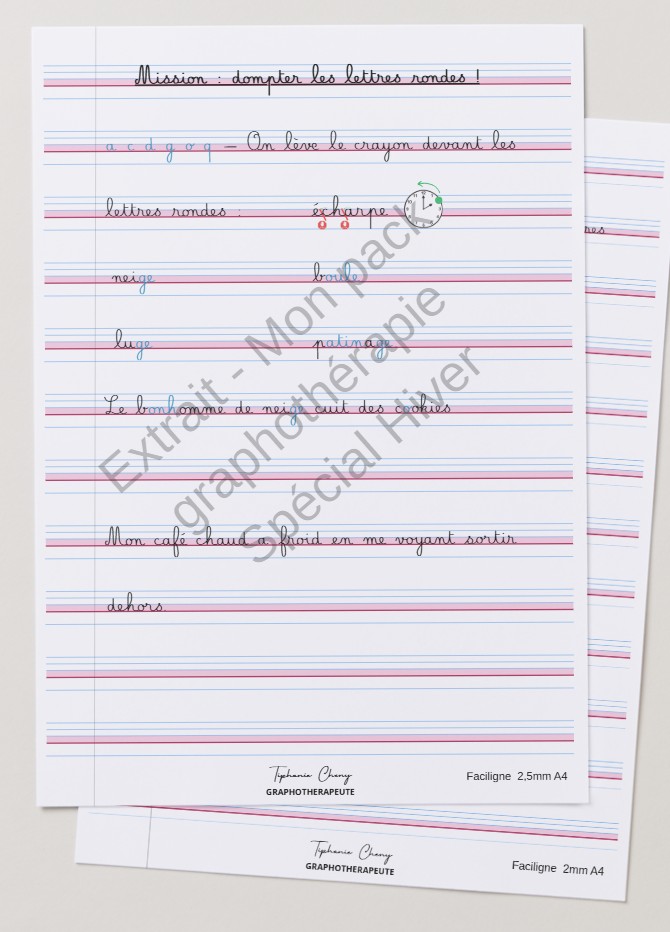 Mission : dompter les lettres rondes !
a c d g o q – On lève le crayon devant les
lettres rondes : écharpe
neige boule
luge patinage
Le bonhomme de neige cuit des cookies
Mon café chaud a froid en me voyant sortir
dehors.
Extrait - Mon pack
graphothérapie
Spécial Hiver
Tiphanie Cheny
GRAPHOTHERAPEUTE
Faciligne 2,5mm A4
Tiphanie Cheny
GRAPHOTHERAPEUTE
Faciligne 2mm A4